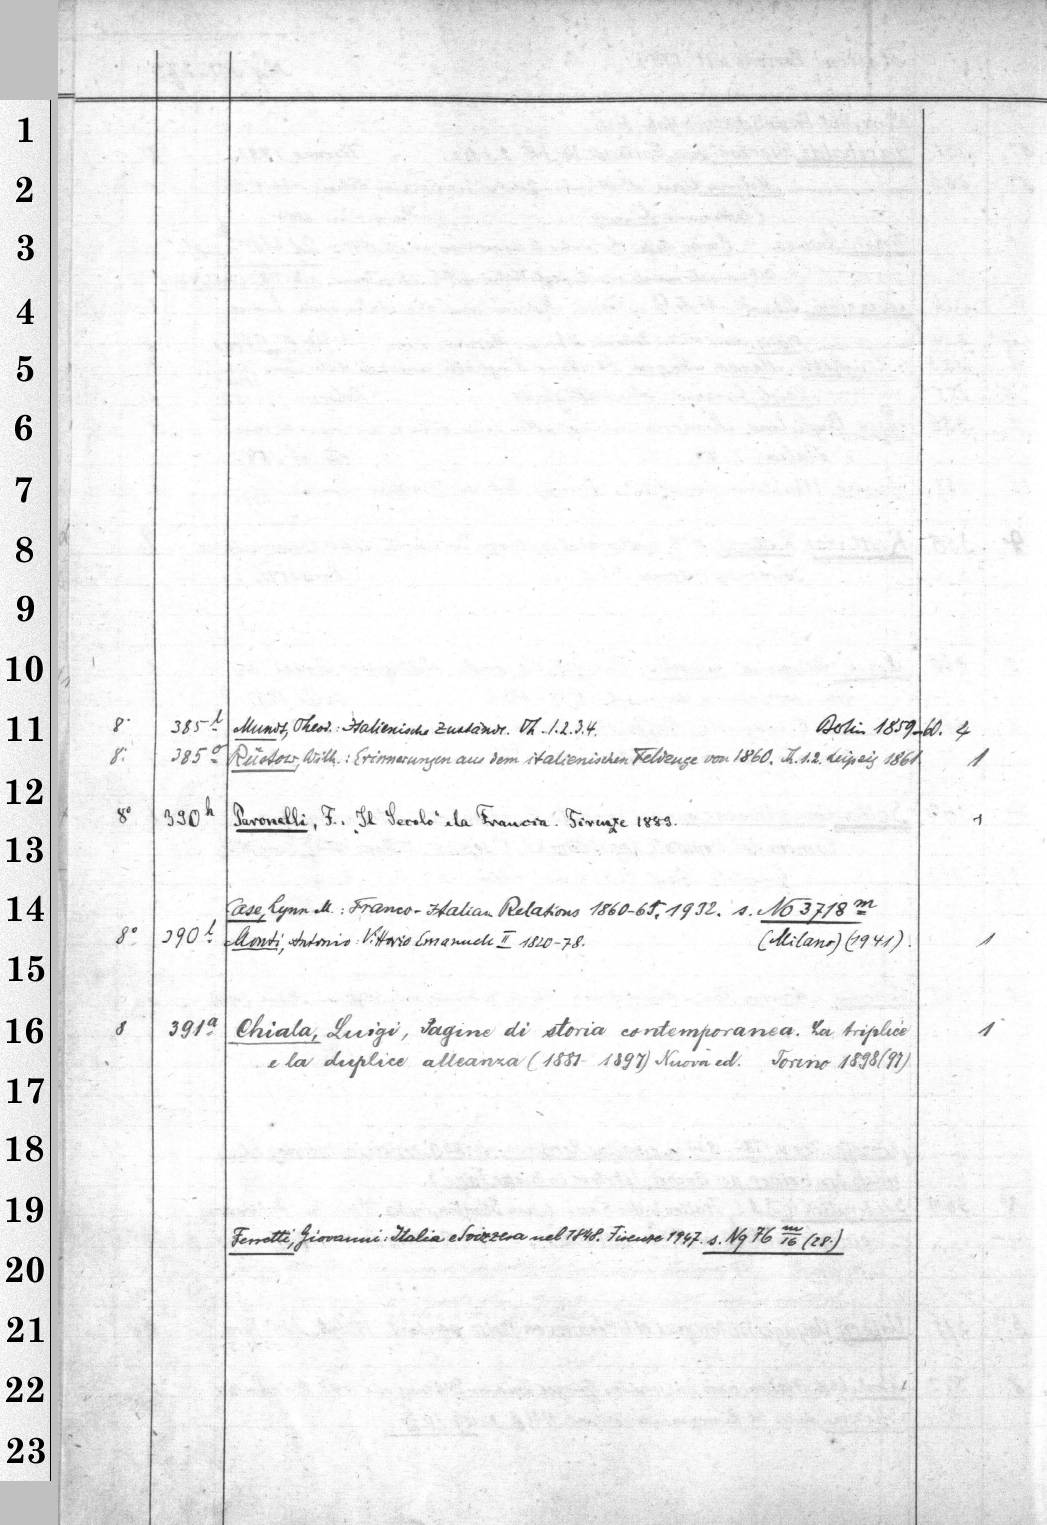 1
2
3
4
5
6
7
8
9
10
11
8° 385 l Mundt, Theod.: Italienische Zustände. Th. 1.2.3.4. Berlin 1859-60. 4
8° 385 o Rüstow, Wilh.: Erinnerungen aus dem italienischen Feldzuge von 1860. Th. 1.2. Leipzig 1861. 1
12
8° 390 h Paronelli, F. „Il Secolo" e la Francia. Firenze 1889. 1
13
14
Case, Lynn M.: Franco-Italian Relations 1860-65. 1932. s. No 3718 m
8° 390 l Monti, Antonio: Vittorio Emanuele II 1820-78. (Milano) (1941). 1
15
16
8 391 a Chiala, Luigi, Pagine di storia contemporanea. La triplice 1
e la duplice alleanza (1881-1897) Nuova ed. Torino 1898(97)
17
18
19
Ferretti, Giovanni: Italia e Svizzera nel 1848. Firenze 1947. s. Ng 76 m/16 (28.)
20
21
22
23